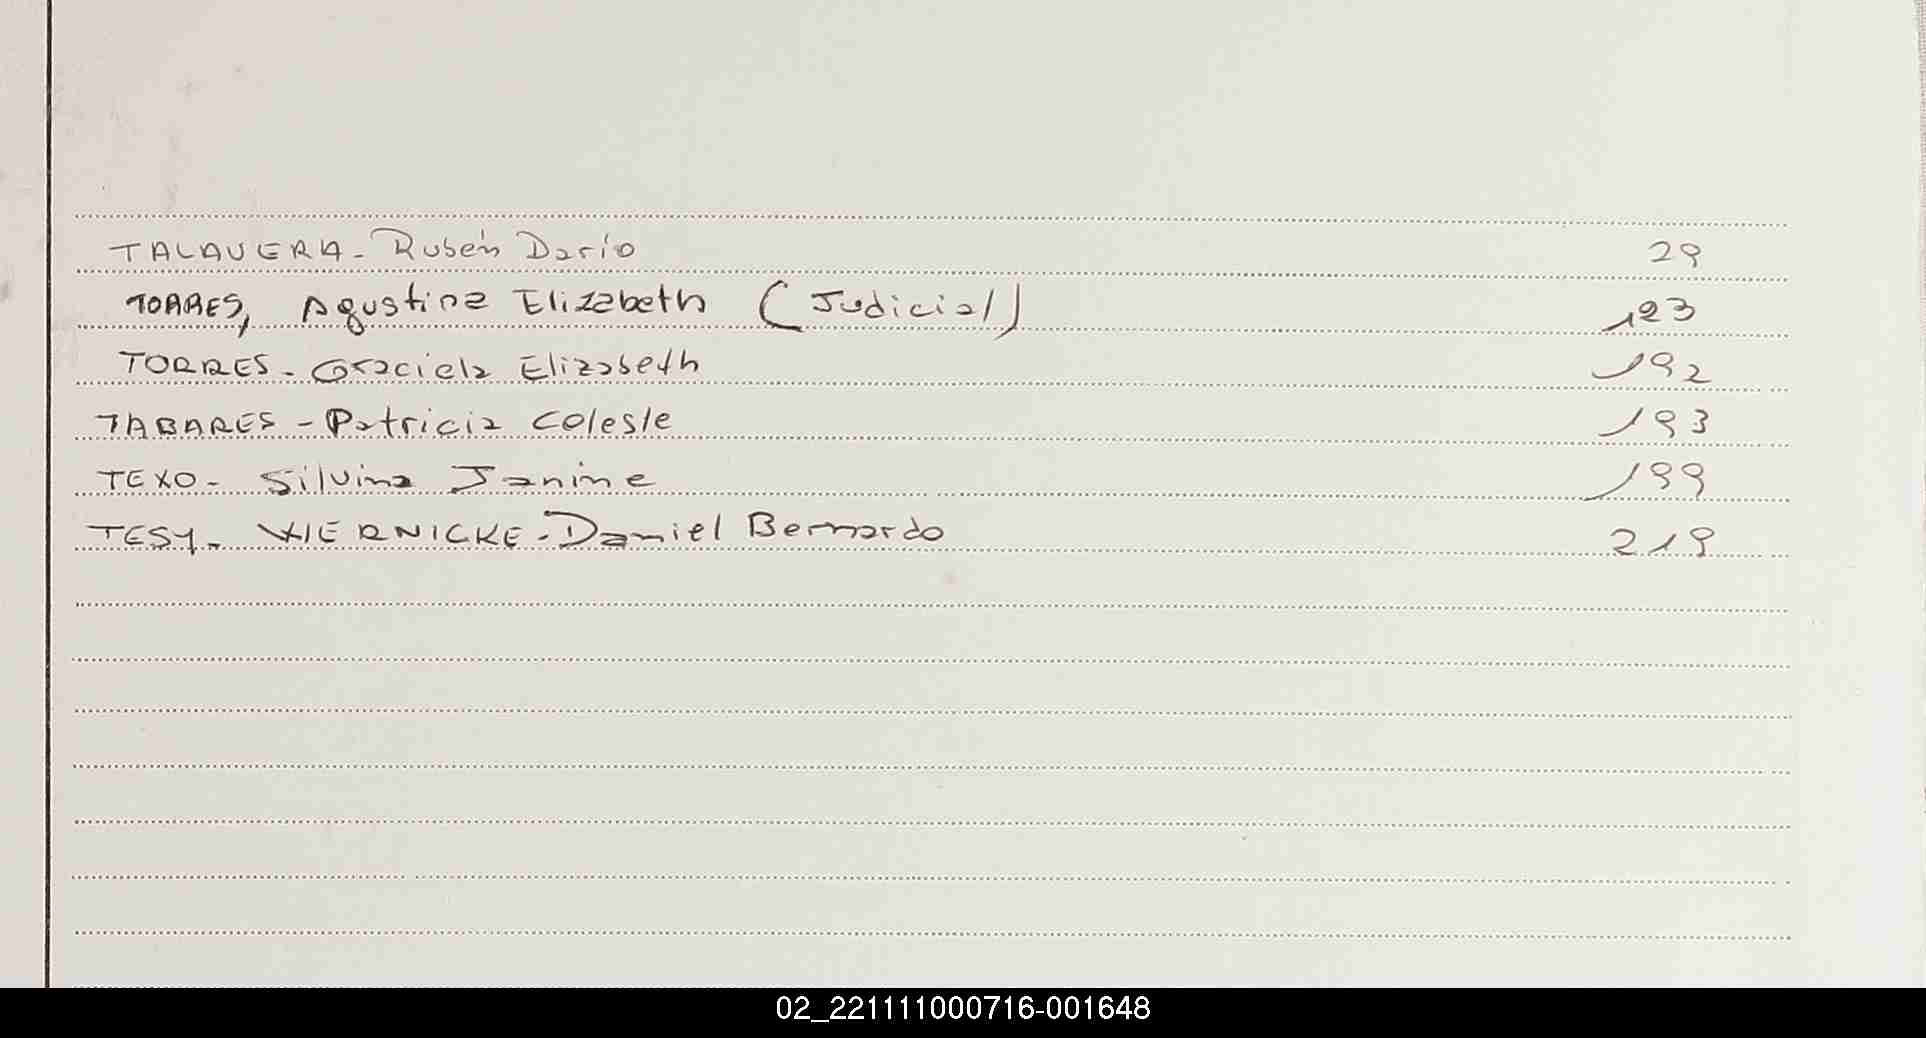 TALAVERA - Rubén Darío 29
TORRES, Agustina Elizabeth (Judicial) 123
TORRES - Graciela Elizabeth 192
TABARES - Patricia Celeste 193
TEXO - Silvina Janine 199
TESY - WIERNICKE - Daniel Bernardo 219
02_221111000716-001648